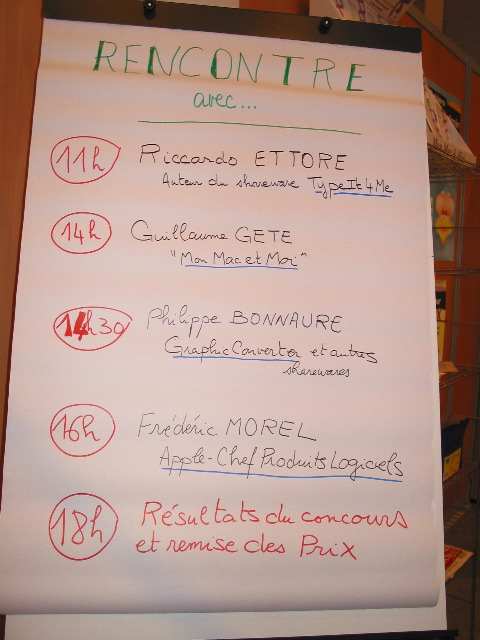 RENCONTRE
avec...
11h Riccardo ETTORE
Auteur du shareware TypeIt4Me
14h Guillaume GETE
"Mon Mac et Moi"
14h30 Philippe BONNAURE
GraphicConverter et autres
sharewares
16h Frédéric MOREL
Apple-Chef Produits Logiciels
18h Résultats du concours
et remise des Prix